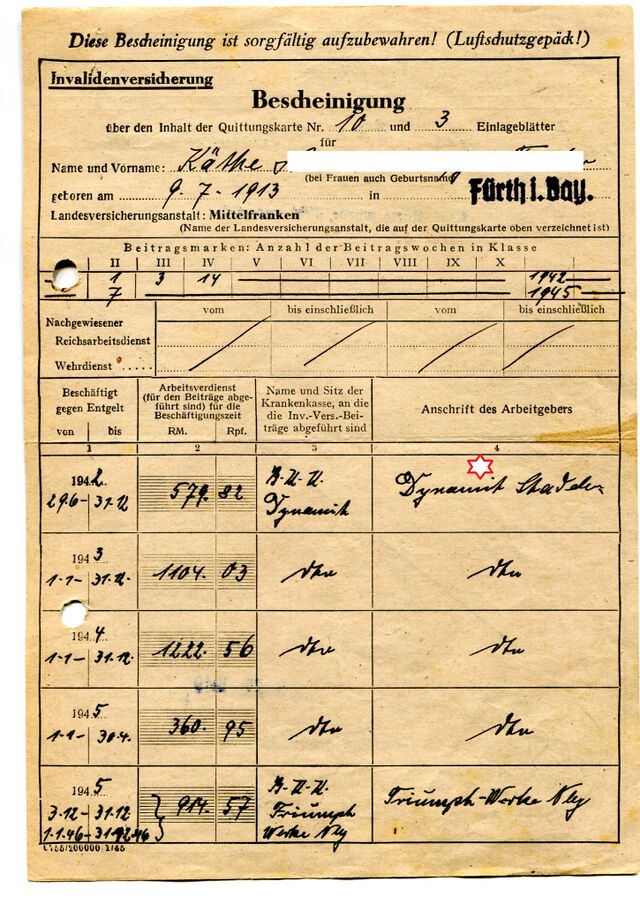 Diese Bescheinigung ist sorgfältig aufzubewahren! (Luftschutzgepäck!)
Invalidenversicherung
Bescheinigung
über den Inhalt der Quittungskarte Nr. 10 und 3 Einlageblätter
für
Name und Vorname: Käthe
(bei Frauen auch Geburtsname)
geboren am 9.7.1913 in Fürth i. Bay.
Landesversicherungsanstalt: Mittelfranken
(Name der Landesversicherungsanstalt, die auf der Quittungskarte oben verzeichnet ist)
Beitragsmarken: Anzahl der Beitragswochen in Klasse
II III IV V VI VII VIII IX X
1 3 14 1942
7 1945
vom bis einschließlich vom bis einschließlich
Nachgewiesener
Reichsarbeitsdienst
Wehrdienst .....
Beschäftigt gegen Entgelt
von bis
Arbeitsverdienst (für den Beiträge abgeführt sind) für die Beschäftigungszeit
RM. Rpf.
Name und Sitz der Krankenkasse, an die die Inv.-Vers.-Beiträge abgeführt sind
Anschrift des Arbeitgebers
1 2 3 4
1942 29.6 - 31.12 579. 82 B.K.K. Dynamit Dynamit Stadeln
1943 1.1 - 31.12. 1104. 03 dto dto
1944 1.1 - 31.12. 1222. 56 dto dto
1945 1.1 - 30.4. 360. 95 dto dto
1945 3.12 - 31.12 914. 57 B.K.K. Triumph Werke Nbg Triumph-Werke Nbg
1.1.46 - 31.12.46